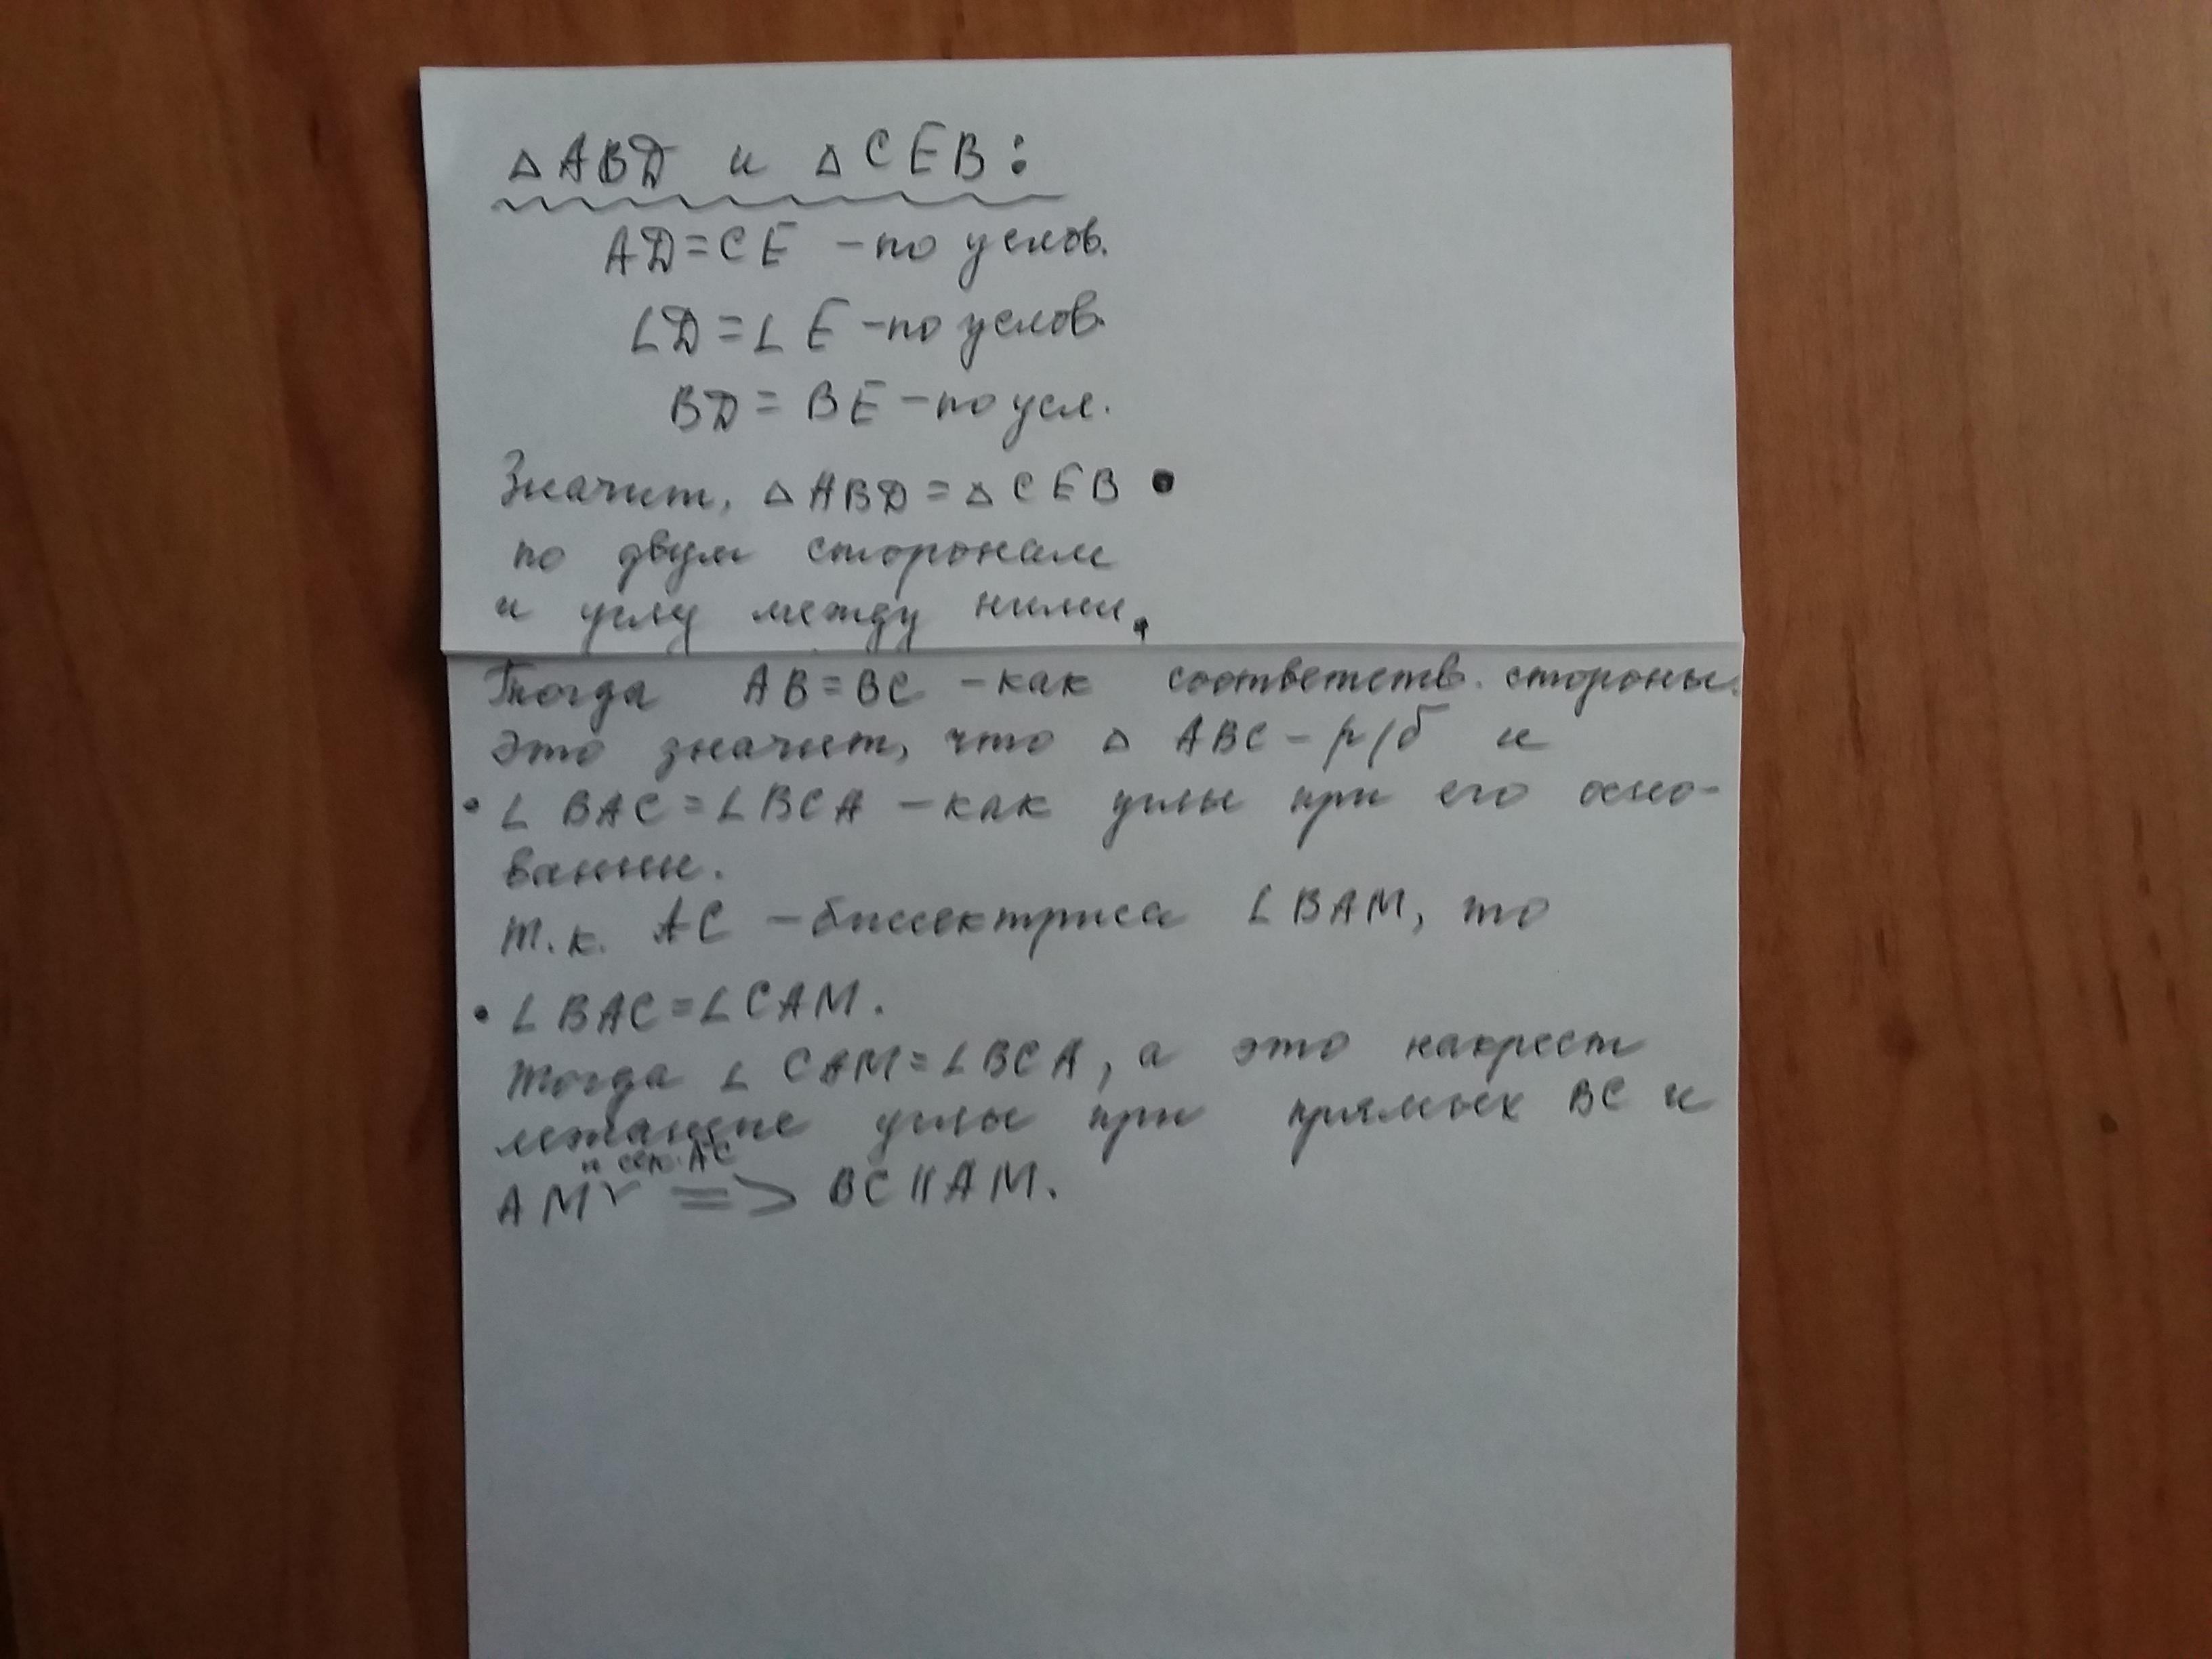 △ ABD и △ CEB:
AD = CE – по услов.
∠D = ∠E – по услов.
BD = BE – по усл.
Значит, △ ABD = △ CEB
по двум сторонам
и углу между ними.
Тогда AB = BC – как соответств. стороны.
Это значит, что △ ABC – р/б и
• ∠ BAC = ∠ BCA – как углы при его осно-
вании.
Т.к. AC – биссектриса ∠ BAM, то
• ∠ BAC = ∠ CAM.
Тогда ∠ CAM = ∠ BCA, а это накрест
лежащие углы при прямых BC и
и сек. AC
AM ∨ => BC || AM.